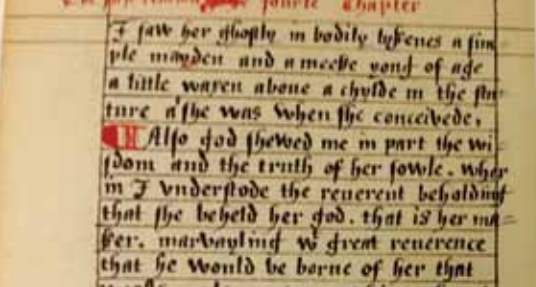 fourte Chapter
I saw her ghostly in bodily lykenes a sim
ple mayden and a meeke yong of age
a little waxen aboue a chylde in the sta
ture as she was when she conceivede,
Also god shewed me in part the wi
sdom and the truth of her sowle. wher
in I vnderstode the reuerent beholding
that she beheld her god. that is her ma=
ker. marvayling wt great reuerence
that he would be borne of her that